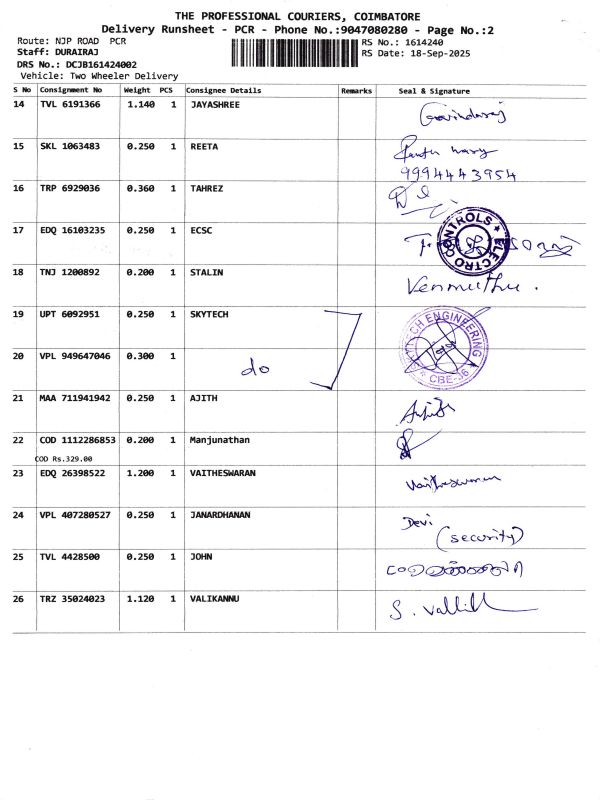 THE PROFESSIONAL COURIERS, COIMBATORE
Delivery Runsheet - PCR - Phone No.:9047080280 - Page No.:2
Route: NJP ROAD PCR
RS No.: 1614240
Staff: DURAIRAJ
RS Date: 18-Sep-2025
DRS No.: DCJB161424002
Vehicle: Two Wheeler Delivery
S No Consignment No Weight PCS Consignee Details Remarks Seal & Signature
14 TVL 6191366 1.140 1 JAYASHREE Govindaraj
15 SKL 1063483 0.250 1 REETA
9994443954
16 TRP 6929036 0.360 1 TAHREZ
17 EDQ 16103235 0.250 1 ECSC ELECTRO CONTROLS
18 TNJ 1200892 0.200 1 STALIN
19 UPT 6092951 0.250 1 SKYTECH SKYTECH ENGINEERING
CBE-36
20 VPL 949647046 0.300 1 do
21 MAA 711941942 0.250 1 AJITH
22 COD 1112286853 0.200 1 Manjunathan
COD Rs.329.00
23 EDQ 26398522 1.200 1 VAITHESWARAN Vaitheswaran
24 VPL 407280527 0.250 1 JANARDHANAN Devi
(security)
25 TVL 4428500 0.250 1 JOHN
26 TRZ 35024023 1.120 1 VALIKANNU S. Valli